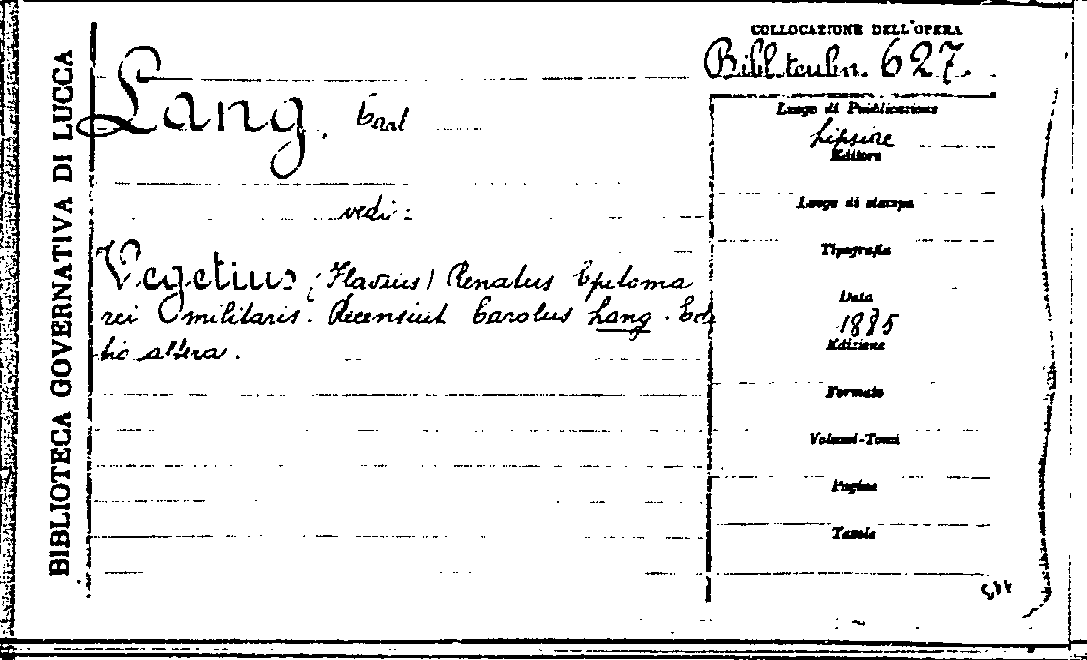 BIBLIOTECA GOVERNATIVA DI LUCCA
COLLOCAZIONE DELL'OPERA
Bibl. teubn. 627.
Lang, Carl
vedi:
Vegetius (Flavius) Renatus Epitoma
rei militaris. Recensuit Carolus Lang. Edi
tio altera.
Luogo di Pubblicazione
Lipsiae
Editore
Luogo di stampa
Tipografia
Data
1885
Edizione
Formato
Volumi-Tomi
Pagine
Tavole